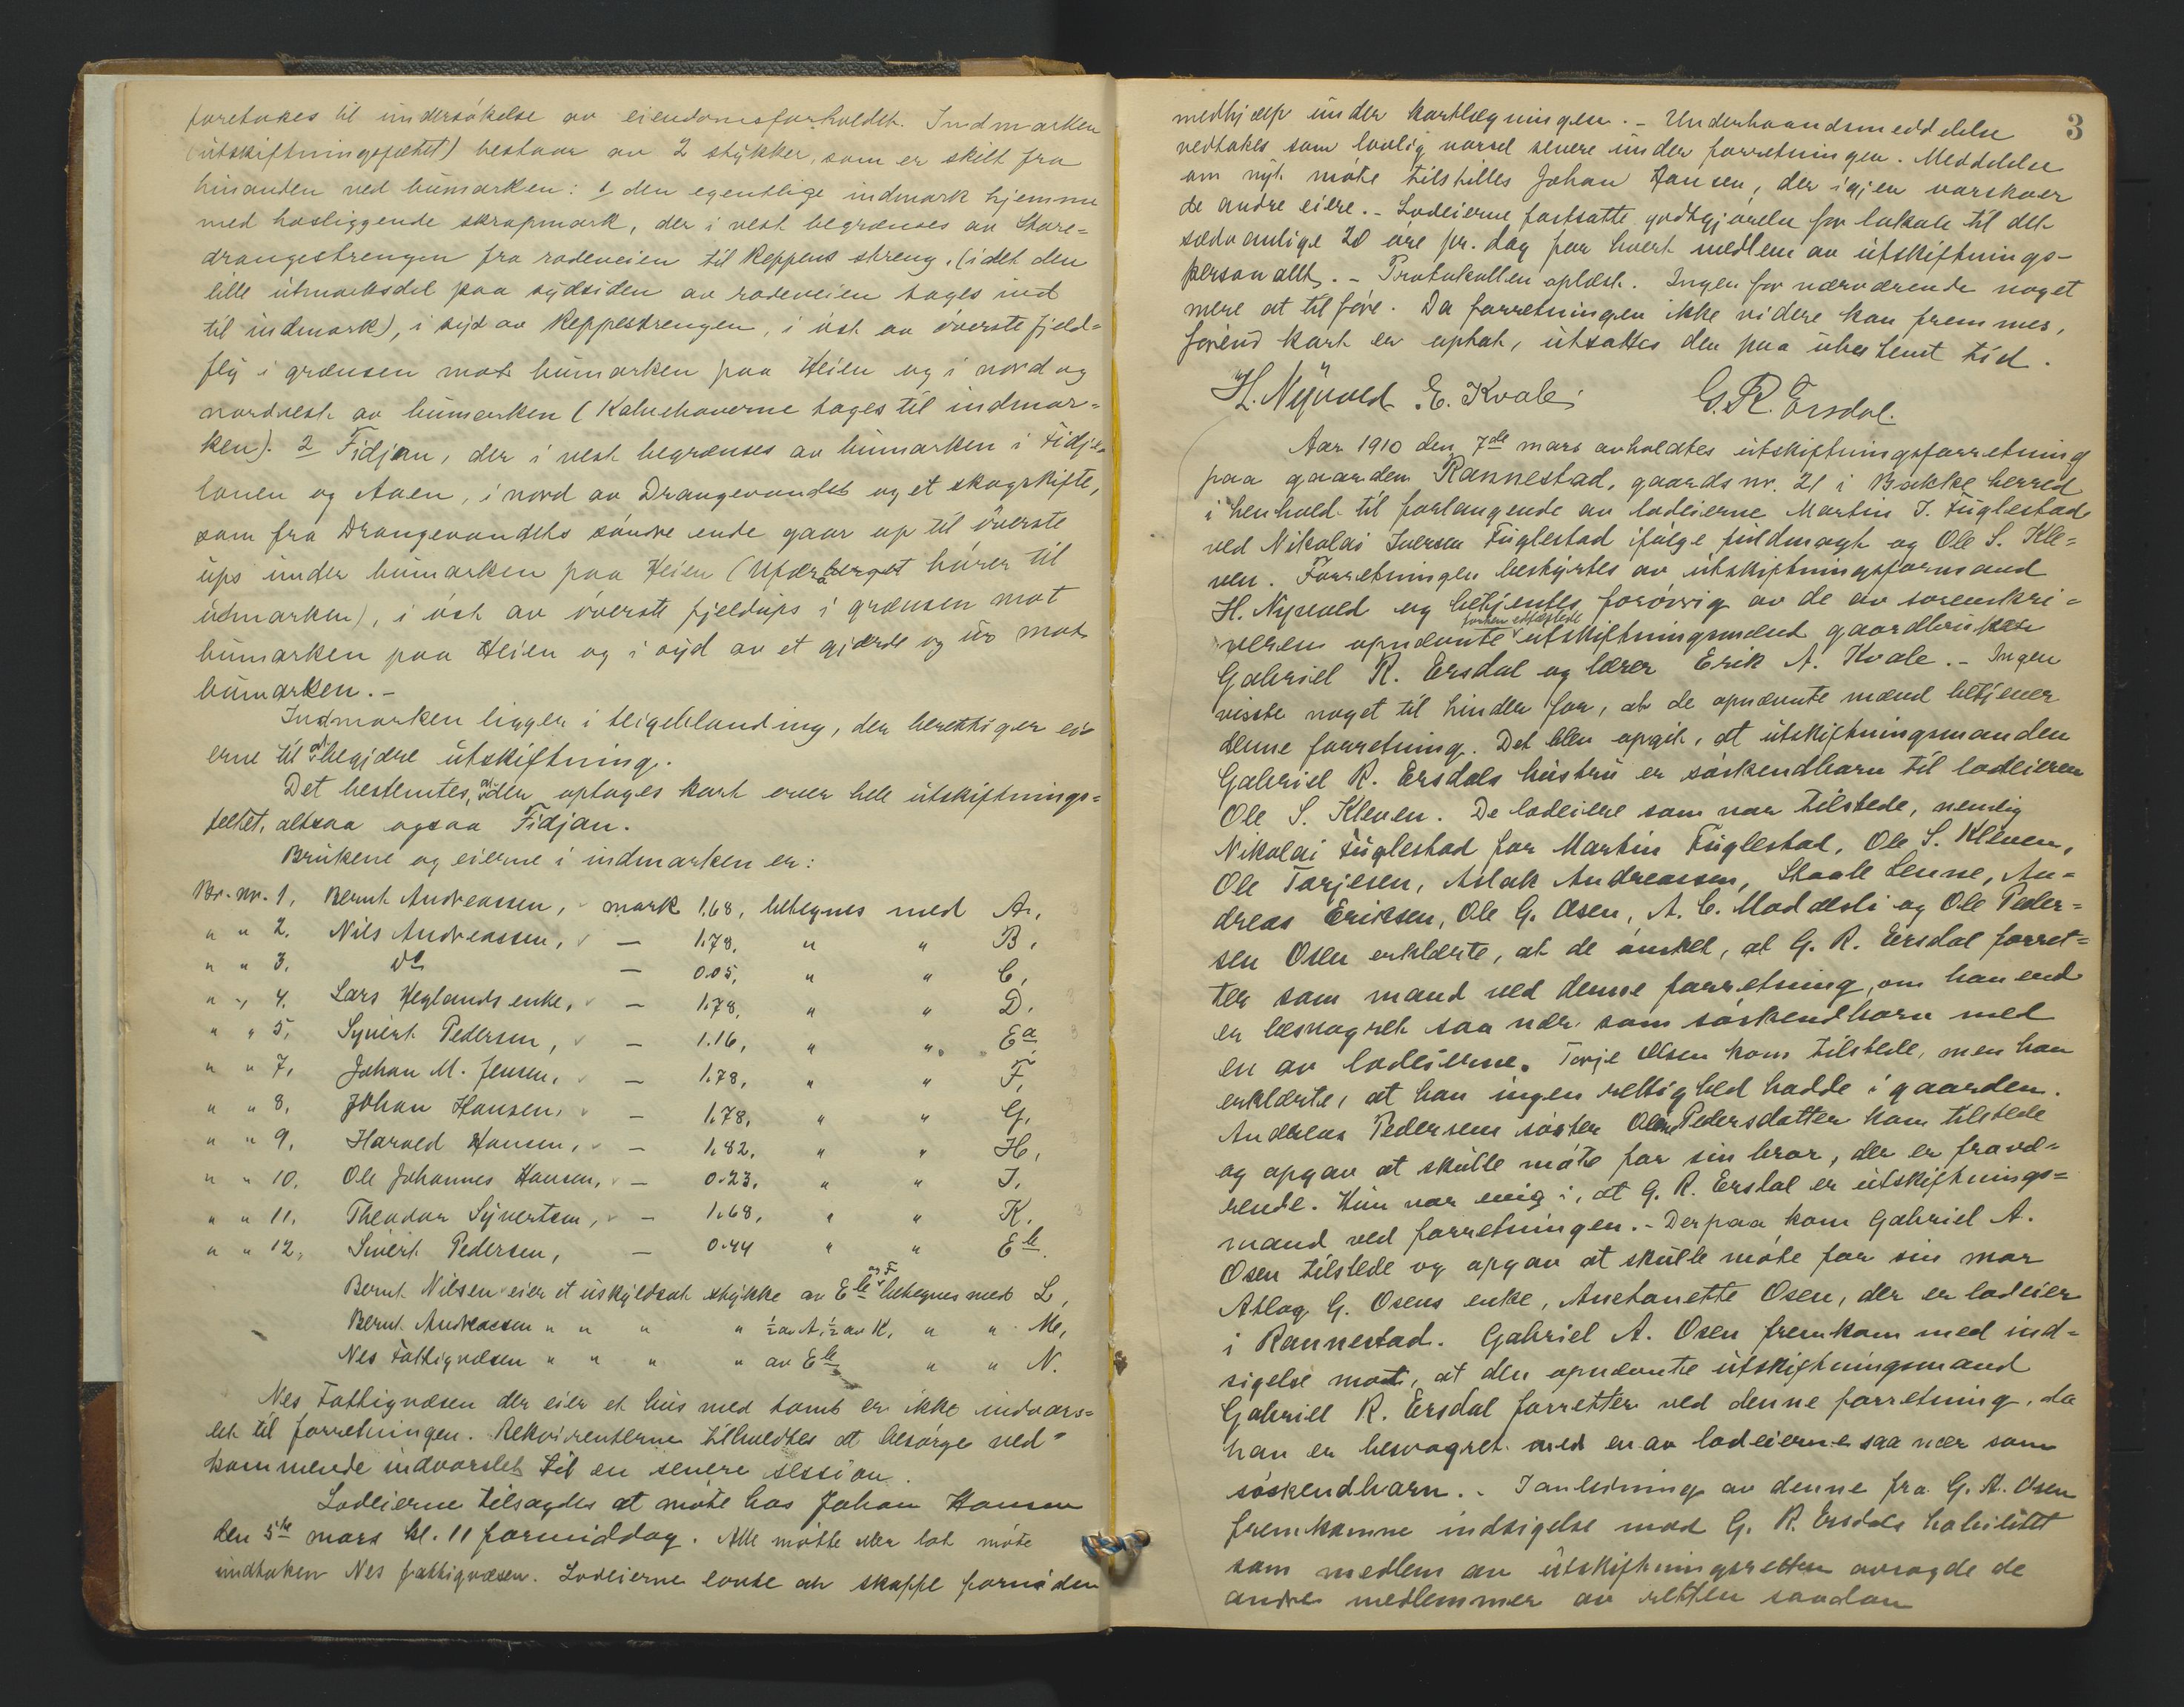 foretakes til undersökelse av eiendomsforholdet. Indmarken
(utskiftningsfeltet) bestaar av 2 stykker, som er skilt fra
hinanden ved bumarken: 1, den egentlige indmark hjemme
med hosliggende skrapmark, der i vest begrænses av Store=
drangestrengen fra rodeveien til Reppens streng, (idet den
lille utmarksdel paa sydsiden av rodeveien tages ind
til indmark), i syd av Reppestrengen, i öst av överste fjeld=
fly i grænsen mot bumarken paa Heien og i nord og
nordvest av bumarken (Kalvehaverne tages til indmar=
ken). 2 Fidjan, der i vest begrænses av bumarken i Fidje=
lonen og Aaen, i nord av Drangevandet og et skogskifte,
som fra Drangevandets söndre ende gaar op til överste
ups under bumarken paa Heien (Ufærberget hörer til
udmarken), i öst av överste fjeldups i grænsen mot
bumarken paa Heien og i syd av et gjærde og ur mot
bumarken.-
Indmarken ligger i teigeblanding, der berettiger ei-
erne til at begjære utskiftning.
Det bestemtes, at der optages kart over hele utskiftnings=
feltet, altsaa ogsaa Fidjan.
Brukene og eierne i indmarken er:
Br.nr. 1, Bernt Andreassen, mark 1.68, betegnes med A,
" " 2. Nils Andreassen, — 1.78, " " B,
" " 3, do — 0.05, " " C,
" " 4. Lars Heglands enke, — 1.78, " " D,
" " 5, Syvert Pedersen, — 1.16, " " Ea,
" " 7, Johan M. Jensen, — 1.78, " " F,
" " 8, Johan Hansen, — 1.78, " " G,
" " 9, Harald Hansen, — 1.82, " " H,
" " 10, Ole Johannes Hansen, — 0.23, " " I,
" " 11, Theodor Syvertsen, — 1.68, " " K.
" " 12, Sivert Pedersen, — 0.44 " " Eb.
Bernt Nilsen eier et uskyldsat stykke av Eb og F betegnes med L,
Bernt Andreassen " " " " ½ av A, ½ av K, " " M,
Nes Fattigvæsen " " " " av Eb " " N.
Nes Fattigvæsen der eier et hus med tomt er ikke indvars=
let til forretningen. Rekvirenterne tilholdtes at besörge ved=
kommende indvarslet til en senere session.
Lodeierne tilsagdes at möte hos Johan Hansen
den 5te mars kl. 11 formiddag. Alle mötte eller lot möte
undtaken Nes fattigvæsen. Lodeierne lovte at skaffe fornöden
3
medhjælp under kartlægningen.- Underhaandsmeddelelse
vedtakes som lovlig varsel senere under forretningen. Meddelelse
om nyt möte tilstilles Johan Hansen, der igjen varskoer
de andre eiere.- Lodeierne fastsatte godtgjörelse for lokale til det
sædvanlige 20 öre pr. dag for hvert medlem av utskiftnings-
personallet.- Protokollen oplæst. Ingen for nærværende noget
mere at tilföie. Da forretningen ikke videre kan fremmes,
förend kart er optat, utsattes den paa ubestemt tid.
H. Nyvold E. Kvale G. R. Ersdal.
Aar 1910 den 7de mars avholdtes utskiftningsforretning
paa gaarden Rannestad, gaards nr. 21 i Bakke herred
i henhold til forlangende av lodeierne Martin T. Fuglestad
ved Nikolai Iversen Fuglestad ifölge fuldmagt og Ole S. Kle=
ven. Forretningen bestyrtes av utskiftningsformand
H. Nyvold og betjentes forövrig av de av sorenskri=
veren opnævnte forhen edfæstede utskiftningsmænd gaardbruker
Gabriel R. Ersdal og lærer Erik A. Kvale.- Ingen
visste noget til hinder for, at de opnævnte mænd betjener
denne forretning. Det blev opgit, at utskiftningsmanden
Gabriel R. Ersdals hustru er söskendbarn til lodeieren
Ole S. Kleven. De lodeiere som var tilstede, nemlig
Nikolai Fuglestad for Martin Fuglestad, Ole S. Kleven,
Ole Tarjesen, Aslak Andreassen, Staale Lenne, An=
dreas Eriksen, Ole G. Osen, A. C. Modæsli og Ole Peder=
sen Osen erklærte, at de önsket, at G. R. Ersdal forret=
ter som mand ved denne forretning, om han end
er besvogret saa nær som söskendbarn med
en av lodeierne. Torje Olsen kom tilstede, men han
erklærte, at han ingen rettighed hadde i gaarden.
Andreas Pedersens söster Olene Pedersdatter kom tilstede
og opgav at skulle möte for sin bror, der er fravæ=
rende. Hun var enig i, at G. R. Ersdal er utskiftnings=
mand ved forretningen.- Derpaa kom Gabriel A.
Osen tilstede og opgav at skulle möte for sin mor
Atlag G. Osens enke, Anetonette Osen, der er lodeier
i Rannestad. Gabriel A. Osen fremkom med ind=
sigelse mot, at den opnævnte utskiftningsmand
Gabriel R. Ersdal forretter ved denne forretning, da
han er besvogret med en av lodeierne saa nær som
söskendbarn.- I anledning av denne fra G. A. Osen
fremkomne indsigelse mod G. R. Ersdals habilitet
som medlem av utskiftningsretten avsagde de
andre medlemmer av retten saadan